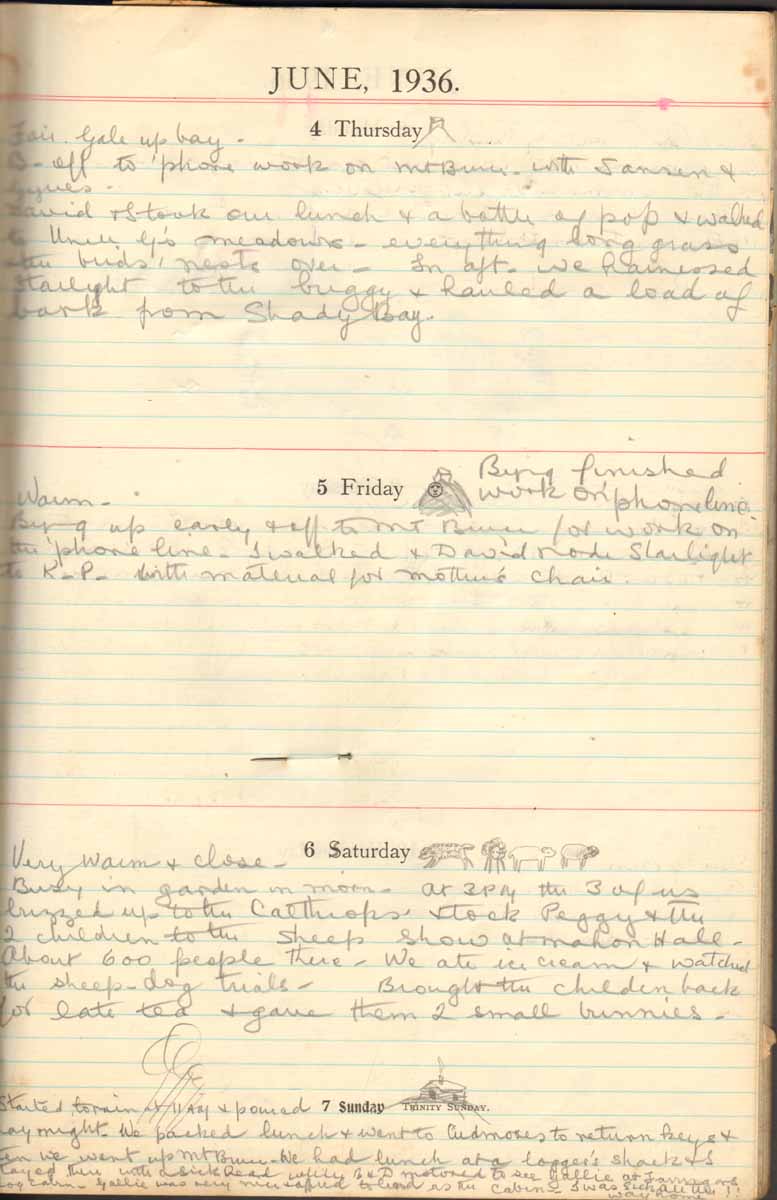 JUNE, 1936.
4 Thursday
Fair. Gale up bay.
B- off to 'phone work on Mt Bruce with Jansen &
David & I took our lunch & a bottle of pop & walked
to Uncle G's meadows - everything long grass
the birds' nests over - In aft. we harnessed
Starlight to the buggy & hauled a load of
bark from Shady Bay.
5 Friday
Beng finished
work on 'phone line.
Warm -
Beng up early & off to Mt Bruce for work on
the 'phone line - I walked & David rode Starlight
to K-P- with material for mother's chair.
6 Saturday
Very warm & close -
Busy in garden in morn - At 2 PM the 3 of us
buzzed up to the Calthrops' & took Peggy & the
2 children to the sheep show at Mahon Hall -
About 600 people there - We ate ice cream & watched
the sheep-dog trials - Brought the children back
for late tea & gave them 2 small bunnies -
7 Sunday TRINITY SUNDAY.
Started to rain at 11 AM & poured
all night. We packed lunch & went to Cudmores to return keys &
then we went up Mt Bruce - We had lunch at a logger's shack & I
stayed there with a sick head while B & D motored to see Gallie at
log cabin - Gallie was very as the cabin I was sick all the
way home